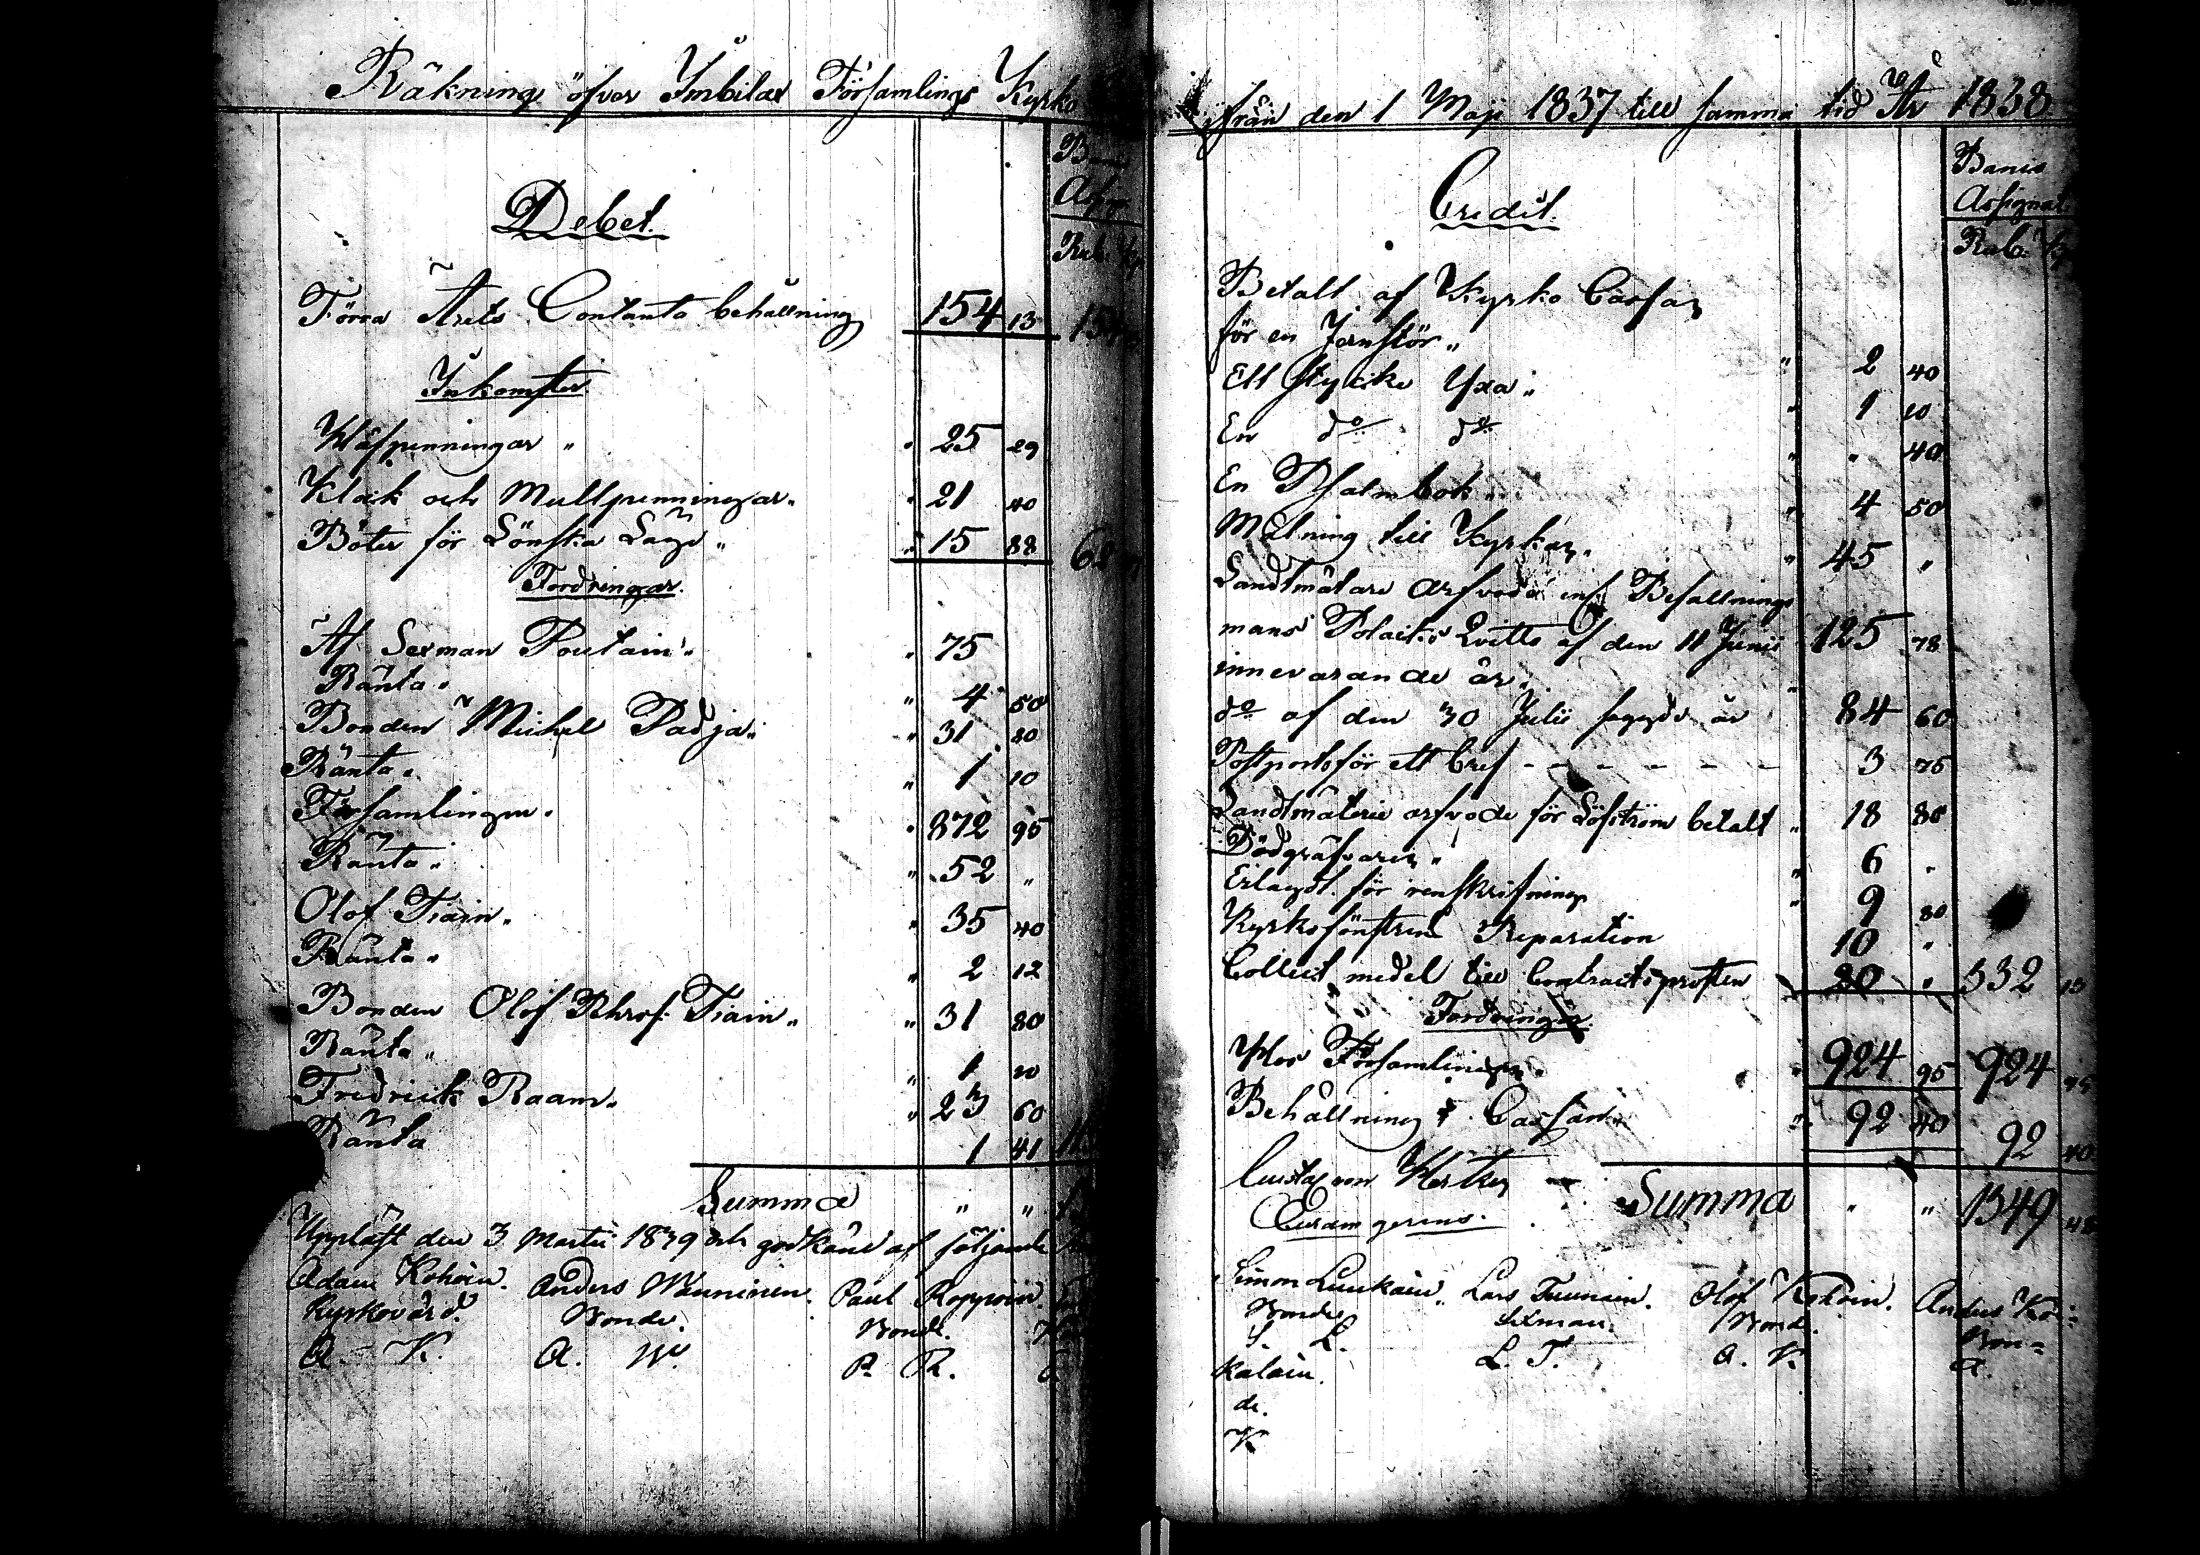 Räkning öfver Imbilax Församlings Kyrko
Debet.
Rub.
Förra Årets Contanta behållning 154 13
Inkomster.
Håfpenningar " " 25 29
Klock och Mullpenningar " " 21 40
Böter för Lönska Läge " " 15 88
Fordringar.
Af Sexman Poutain " " 75
Ränta " " 4 50
Bonden Michel Padja " " 31 80
Ränta " " 1 10
Församlingen " " 872 95
Ränta " " 52 "
Olof Tiain " " 35 40
Ränta " " 2 12
Bonden Olof Tiain " " 31 80
Ränta " " 1 20
Fredrick Raam " " 23 60
Ränta 1 41
Summa " "
Uppläst den 3 Martii 1839 och godkänd af följande
Adam Kohoin. Anders Wänninen. Paul Ropponin.
Kyrkovärd. Bonde. Bonde.
A. K. A. W. P. R.
ifrån den 1 Maji 1837 till samma tid År 1838
Credit.
Banco
Assignat.
Rub.
Betalt af Kyrko Cassan
för en Jernstör " " 2 40
Ett stycike Yxa " " 1 20
En do do " " 40
En Psalmbok " " 4 50
Målning till Kyrkan " " 45 "
Landtmätare arfvode enl. Befallnings
mans Qvitto af den 11 Junii 125 78
innevarande år "
do af den 30 Julii sagde år 84 60
Postporto för ett bref - - - - - - 3 75
Landtmäterie arfvode för Löfström betalt " 18 80
Dödgräfvaren " " 6 "
Erlagdt för renskrifning " 9 80
Kyrkofönstrens Reparation 10 "
Collect medel till Contractsprosten " 20 " 532 13
Fordringar.
Hos Församlingen " " 924 95 924 95
Behållning i Cassan " " 92 40 92 40
Summa " " 1549 48
Simon Luukain. Lars Tuunain. Olof Kohoin. Anders Ko=
Bonde. Sexman. Bonde. Bon=
S. L. L. T. O. K. A.
kalain.
de.
K